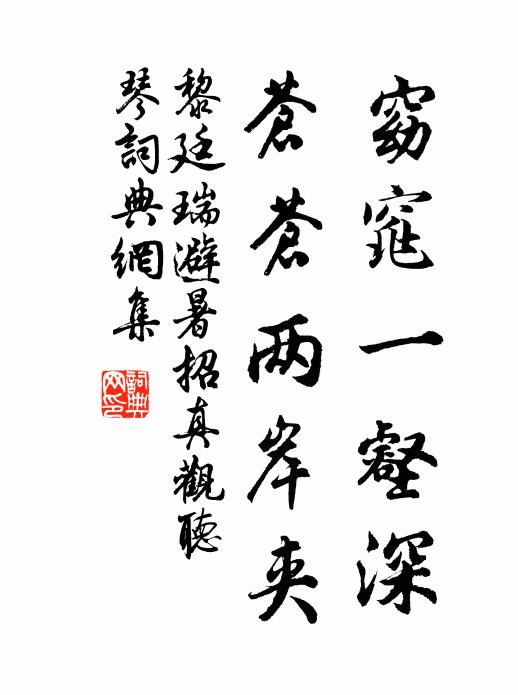 窈窕一壑深
蒼蒼两岸夾
黎廷瑞避暑招真觀聽
琴詞典網集
詞典网印